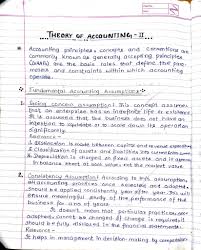 THEORY OF ACCOUNTING - II
Accounting principles, concepts and conventions are
commonly known as generally accepting principles
(GAAP) are the basis rules that define the
and constraints within which accounting
operate.
Fundamental Accounting Assumptions:-
1. Going concern assumption: This concept assumes
that an enterprise has an indefinite life or existence
It is assumed that the business does not have an
intention to liquidate or to scale down its operation
significantly.
Relevance:-
Distinction is made between capital and revenue
Classification of assets and liabilities into current
Depreciation is charged on fixed assets and it appear
in balance sheet at book value, not the market value.
2. Consistency Assumption: According to this assumption,
accounting practices once selected and adopted,
should be applied consistently year after year. This will
ensure meaningful study of the performance of the
business for a no. of years.
It doesn't mean that particular practices, once
adopted, cannot be changed if change is required
should be fully disclosed in the financial statements.
Relevance:-
It helps in management in decision making by